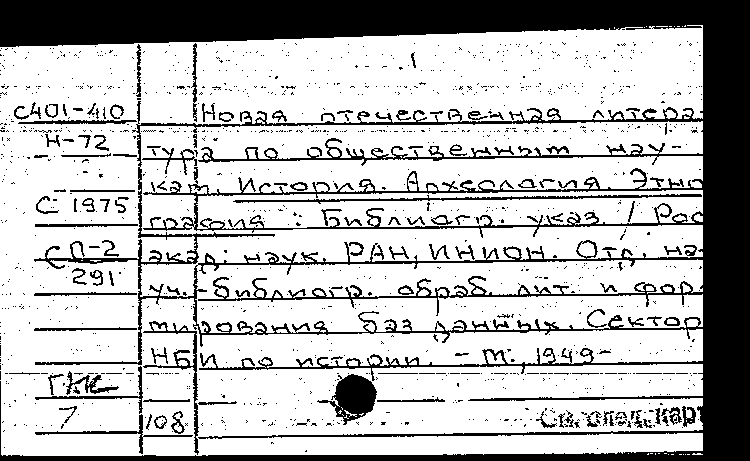 1
С401-410 Новая отечественная литера-
Н-72 тура по общественным нау-
кам. История. Археология. Этно
С 1975 графия : Библиогр. указ. / Рос
П-2 акад. наук. РАН, ИНИОН. Отд. на-
291 уч.-библиогр. обраб. лит. и фор-
мирования баз данных. Сектор
НБИ по истории. - М., 1949-
7 108 См. след. карт